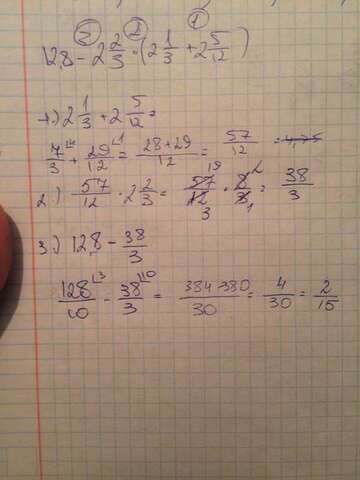 3 2 1
12,8 - 2 2/3 · (2 1/3 + 2 5/12)
1.) 2 1/3 + 2 5/12 =
7/3 + 29/12 = 28+29/12 = 57/12
2.) 57/12 · 2 2/3 = 57/12 · 8/3 = 38/3
3.) 12,8 - 38/3
128/10 - 38/3 = 384-380/30 = 4/30 = 2/15